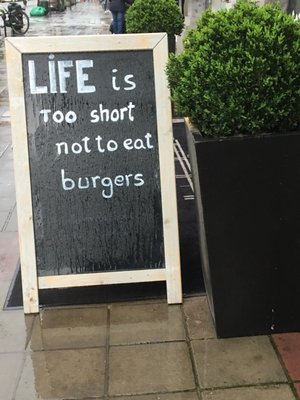 LIFE is
Too short
not to eat
burgers